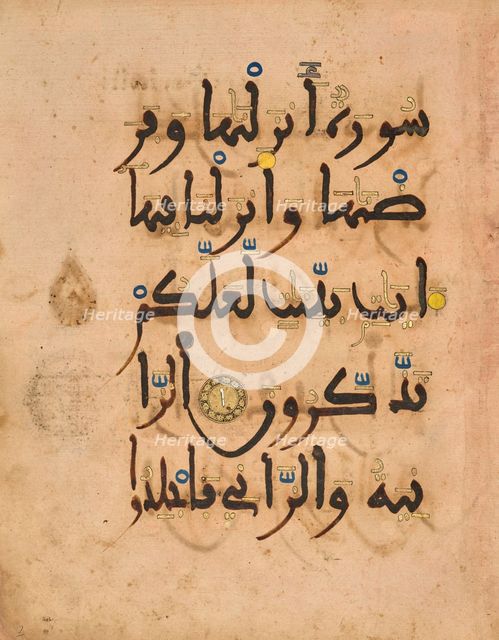 سورة أنزلنها وفر
ضنها وأنزلنا فيها
ءايت بينت لعلكم
تذكرون الزا
نية والزاني فاجلدوا
Heritage Heritage
Heritage Heritage
Heritage Heritage